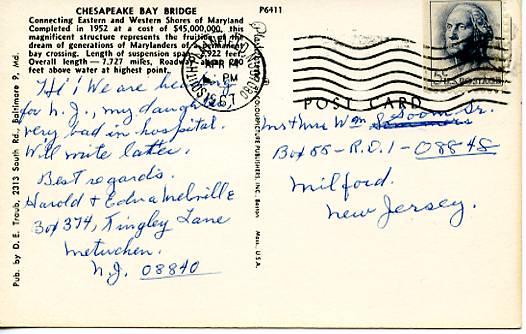 CHESAPEAKE BAY BRIDGE
P6411
Connecting Eastern and Western Shores of Maryland
Completed in 1952 at a cost of $45,000,000, this
magnificent structure represents the fruition of the
dream of generations of Marylanders of a permanent
bay crossing. Length of suspension span 2,922 feet.
Overall length — 7,727 miles, Roadway
feet above water at highest point.
SOUTH PLAINFIELD
APR
PM
1967
U.S. POSTAGE
POST CARD
Hi! We are heading
for N.J., my daughter
very bad in hospital.
Will write latter.
Best regards.
Harold & Edna Melville
Box 374, Tingley Lane
Metuchen.
N.J. 08840
Mr & Mrs Wm Soom Sr.
Box 55-R.D.1-08848
Milford.
New Jersey.
Pub. by D. E. Traub, 2313 South Rd., Baltimore 9, Md.
COLOURPICTURE PUBLISHERS, INC., Boston Mass., U.S.A.